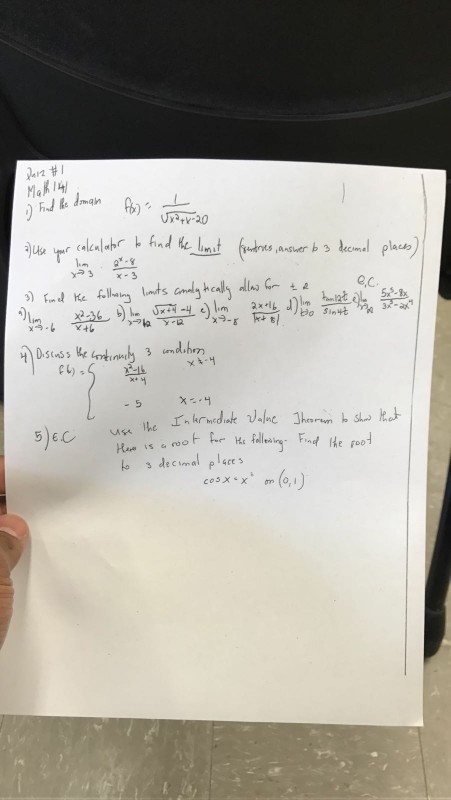 Quiz #1
Math 1
1) Find the domain f(x) = 1/√x²+x-20
2) Use your calculator to find the limit (entries, answer to 3 decimal places)
lim x→3 2ˣ-8/x-3
3) Find the following limits analytically allow for ± ∞ E.C.
a) lim x→-6 x²-36/x+6 b) lim x→12 √x+4-4/x-12 c) lim x→-8 2x+16/|x+8| d) lim t→0 tan12t/sin4t e) lim 5x⁵-8x/3x⁵-2x⁴
4) Discuss the continuity 3 condition
f(x) = { x²-16/x+4 x≠-4
-5 x=-4
5) E.C Use the Intermediate Value Theorem to show that
there is a root for the following. Find the root
to 3 decimal places
cosx=x² on (0,1)